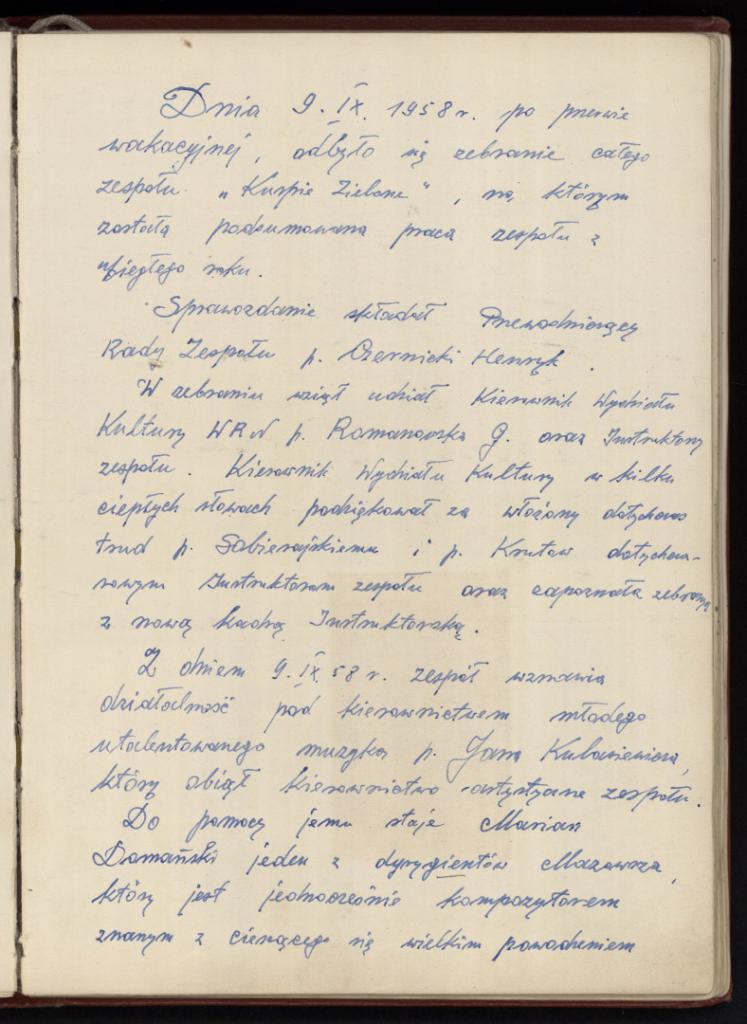 Dnia 9. IX. 1958 r. po przerwie
wakacyjnej, odbyło się zebranie całego
zespołu „Kurpie Zielone", na którym
została podsumowana praca zespołu z
ubiegłego roku.
Sprawozdanie składał Przewodniczący
Rady Zespołu p. Czernicki Henryk.
W zebraniu wziął udział Kierownik Wydziału
Kultury WRN p. Romanowska J. oraz Instruktorzy
zespołu. Kierownik Wydziału Kultury w kilku
ciepłych słowach podziękował za włożony dotychczas
trud p. Sobierajskiemu i p. Krutow dotychcza-
sowym Instruktorom zespołu oraz zapoznała zebranych
z nową kadrą Instruktorską.
Z dniem 9. IX. 58 r. zespół wznawia
działalność pod kierownictwem młodego
utalentowanego muzyka p. Jana Kulasiewicza,
który objął kierownictwo artystyczne zespołu.
Do pomocy jemu staje Marian
Domański jeden z dyrygientów Mazowsza,
który jest jednocześnie kompozytorem
znanym z cieszącego się wielkim powodzeniem